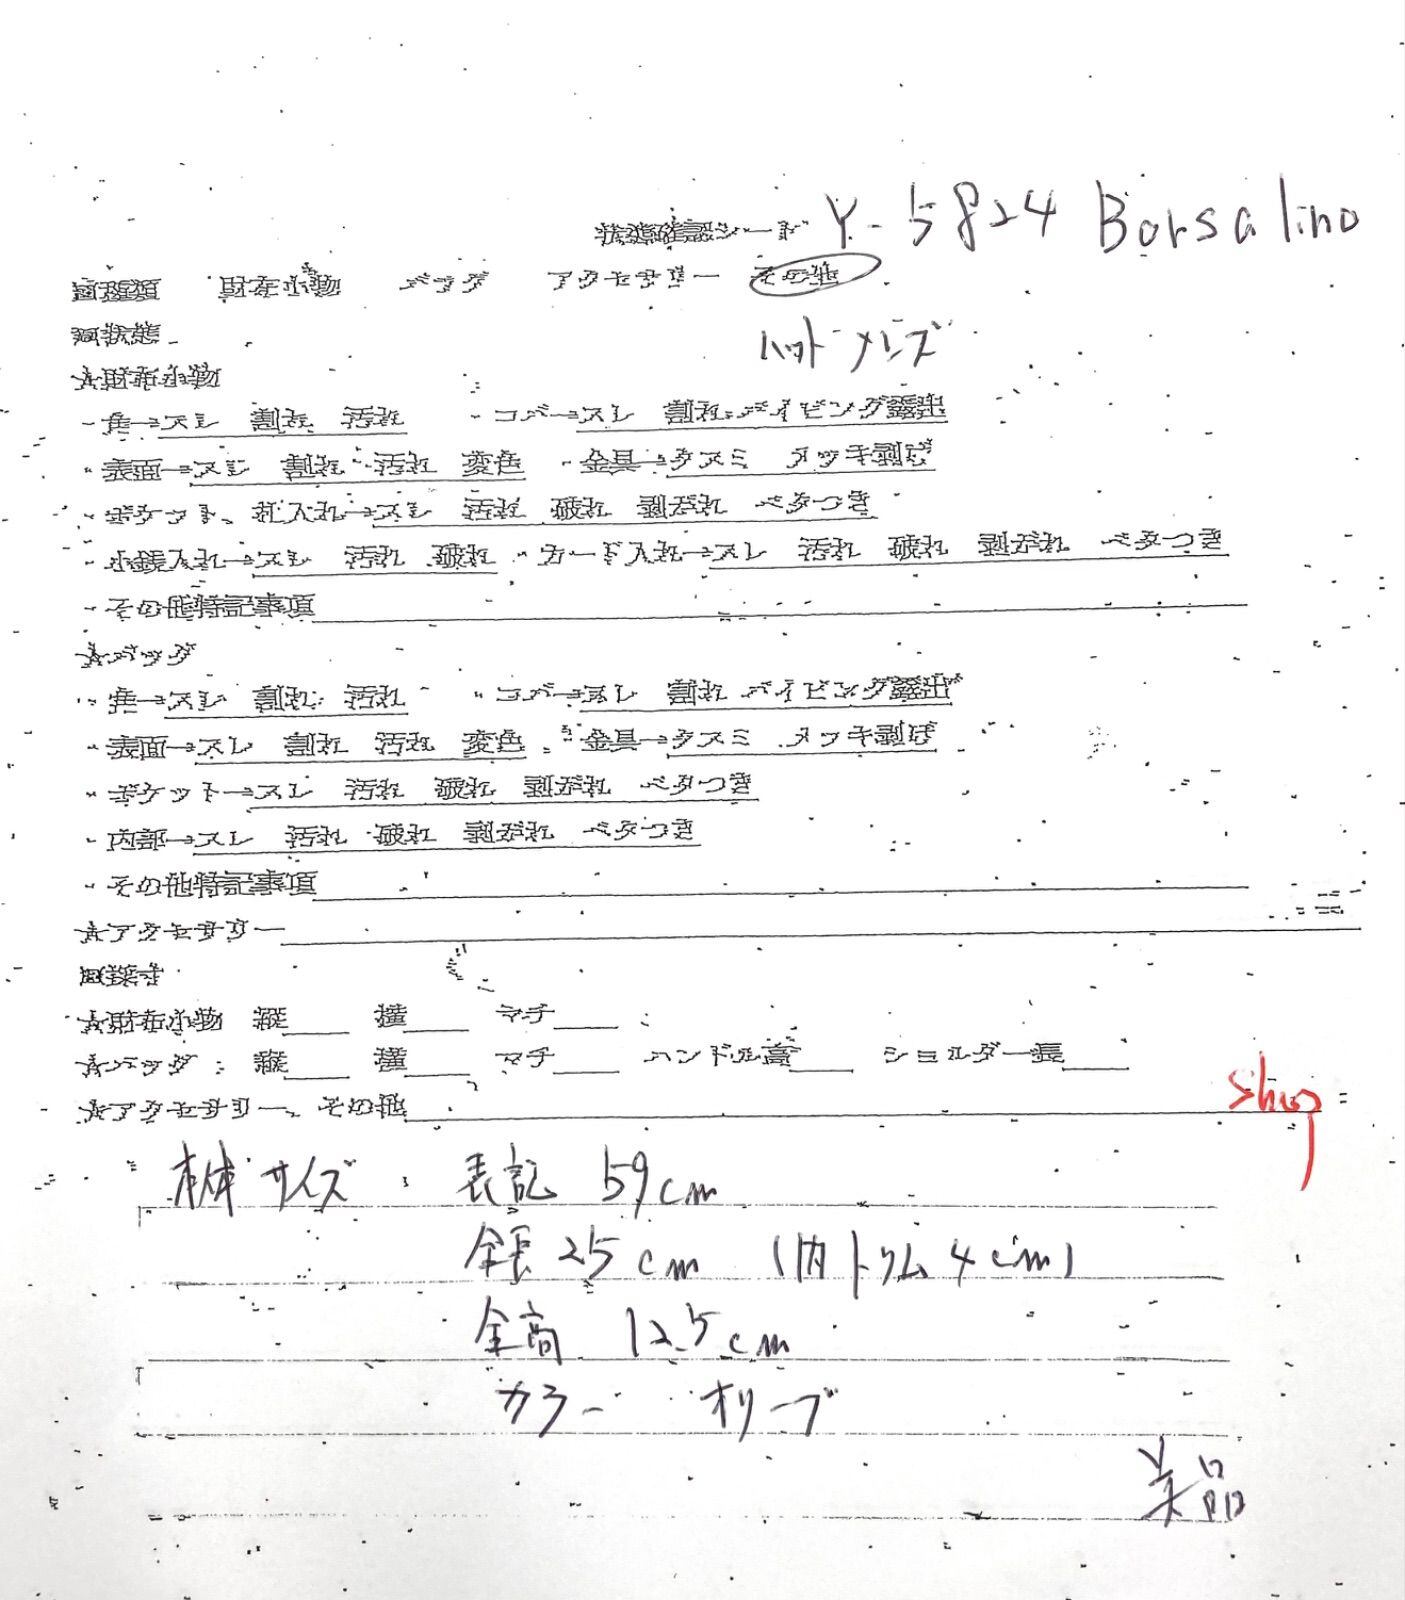 状態確認シート Y-5824 Borsalino
財布小物 バッグ アクセサリー その他
状態
ハット メンズ
☆財布小物
・角→スレ 割れ 汚れ ・コバ→スレ 割れ パイピング露出
・表面→スレ 割れ 汚れ 変色 ・金具→クスミ メッキ剥げ
・ポケット、札入れ→スレ 汚れ 破れ 剥がれ ベタつき
・小銭入れ→スレ 汚れ 破れ ・カード入れ→スレ 汚れ 破れ 剥がれ ベタつき
・その他特記事項
☆バッグ
・角→スレ 割れ 汚れ ・コバ→スレ 割れ パイピング露出
・表面→スレ 割れ 汚れ 変色 ・金具→クスミ メッキ剥げ
・ポケット→スレ 汚れ 破れ 剥がれ ベタつき
・内部→スレ 汚れ 破れ 剥がれ ベタつき
・その他特記事項
☆アクセサリー
採寸
☆財布小物 縦 横 マチ
☆バッグ 縦 横 マチ ハンドル高 ショルダー長
☆アクセサリー、その他
Shop
本体サイズ 表記 59cm
全長 25cm (内トリム4cm)
全高 12.5cm
カラー オリーブ
美品